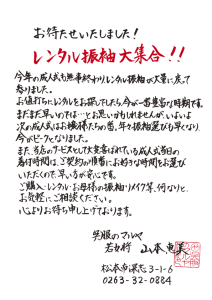 お待たせいたしました！
レンタル振袖大集合！！
今年の成人式も無事終わりレンタル振袖が大量に戻って
参りました。
お値打ちにレンタルをお探しでしたら、今が一番豊富な時期です。
まだまだ早いのでは…とお思いかもしれませんが、いよいよ
次の成人式はお嬢様たちの番。年々振袖選びも早くなり、
今がピークとなりました。
また、当店のサービスとして大変喜ばれている成人式当日の
着付時間は、ご契約の順番にお好きな時間をお選び
いただくので、早い方が安心です。
ご購入・レンタル・お母様の振袖リメイク等、何なりと、
お気軽にご相談ください。
心よりお待ち申し上げております。
呉服のマルヤ
若女将 山本恵美
松本市梓志3-1-6
0263-32-0884